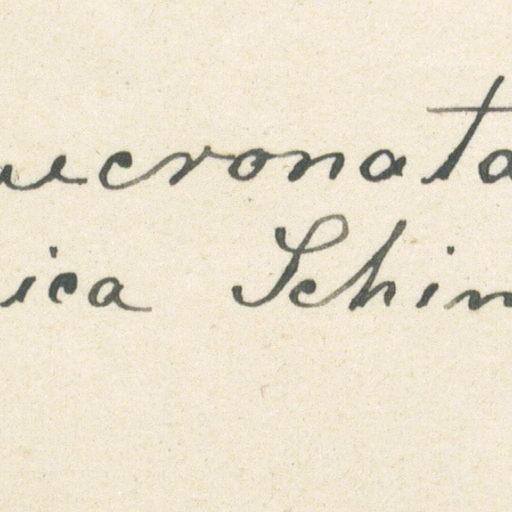 ucronata
ica Schin